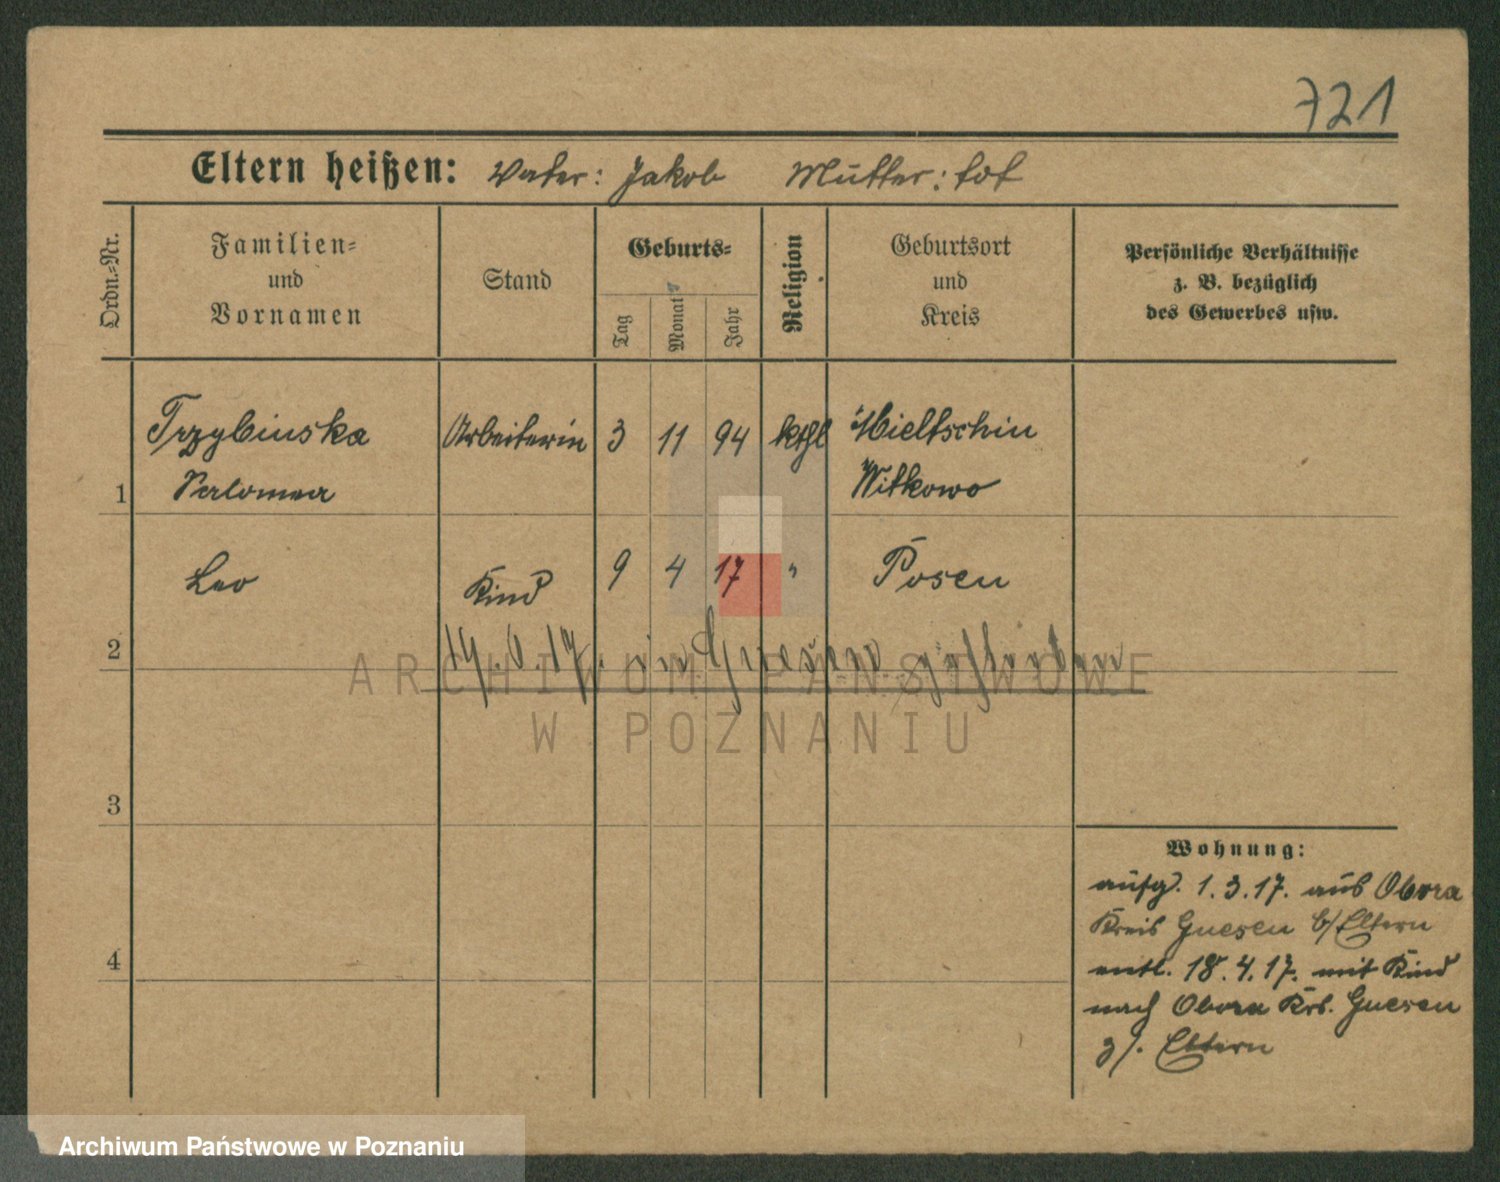 721
Eltern heißen: Vater: Jakob Mutter: tot
Ordn.-Nr.
Familien-
und
Vornamen
Stand
Geburts-
Tag
Monat
Jahr
Religion
Geburtsort
und
Kreis
Persönliche Verhältnisse
z. B. bezüglich
des Gewerbes usw.
Trzybinska Arbeiterin 3 11 94 kthl Mieltschin
1 Salomea Witkowo
Leo Kind 9 4 17 " Posen
2 in Gnesen gestorben
ARCHIWUM PAŃSTWOWE
W POZNANIU
3
4
Wohnung:
aufg. 1.3.17. aus Obora
Kreis Gnesen b/Eltern
entl. 18.4.17. mit Kind
nach Obora Krs. Gnesen
z/. Eltern
Archiwum Państwowe w Poznaniu